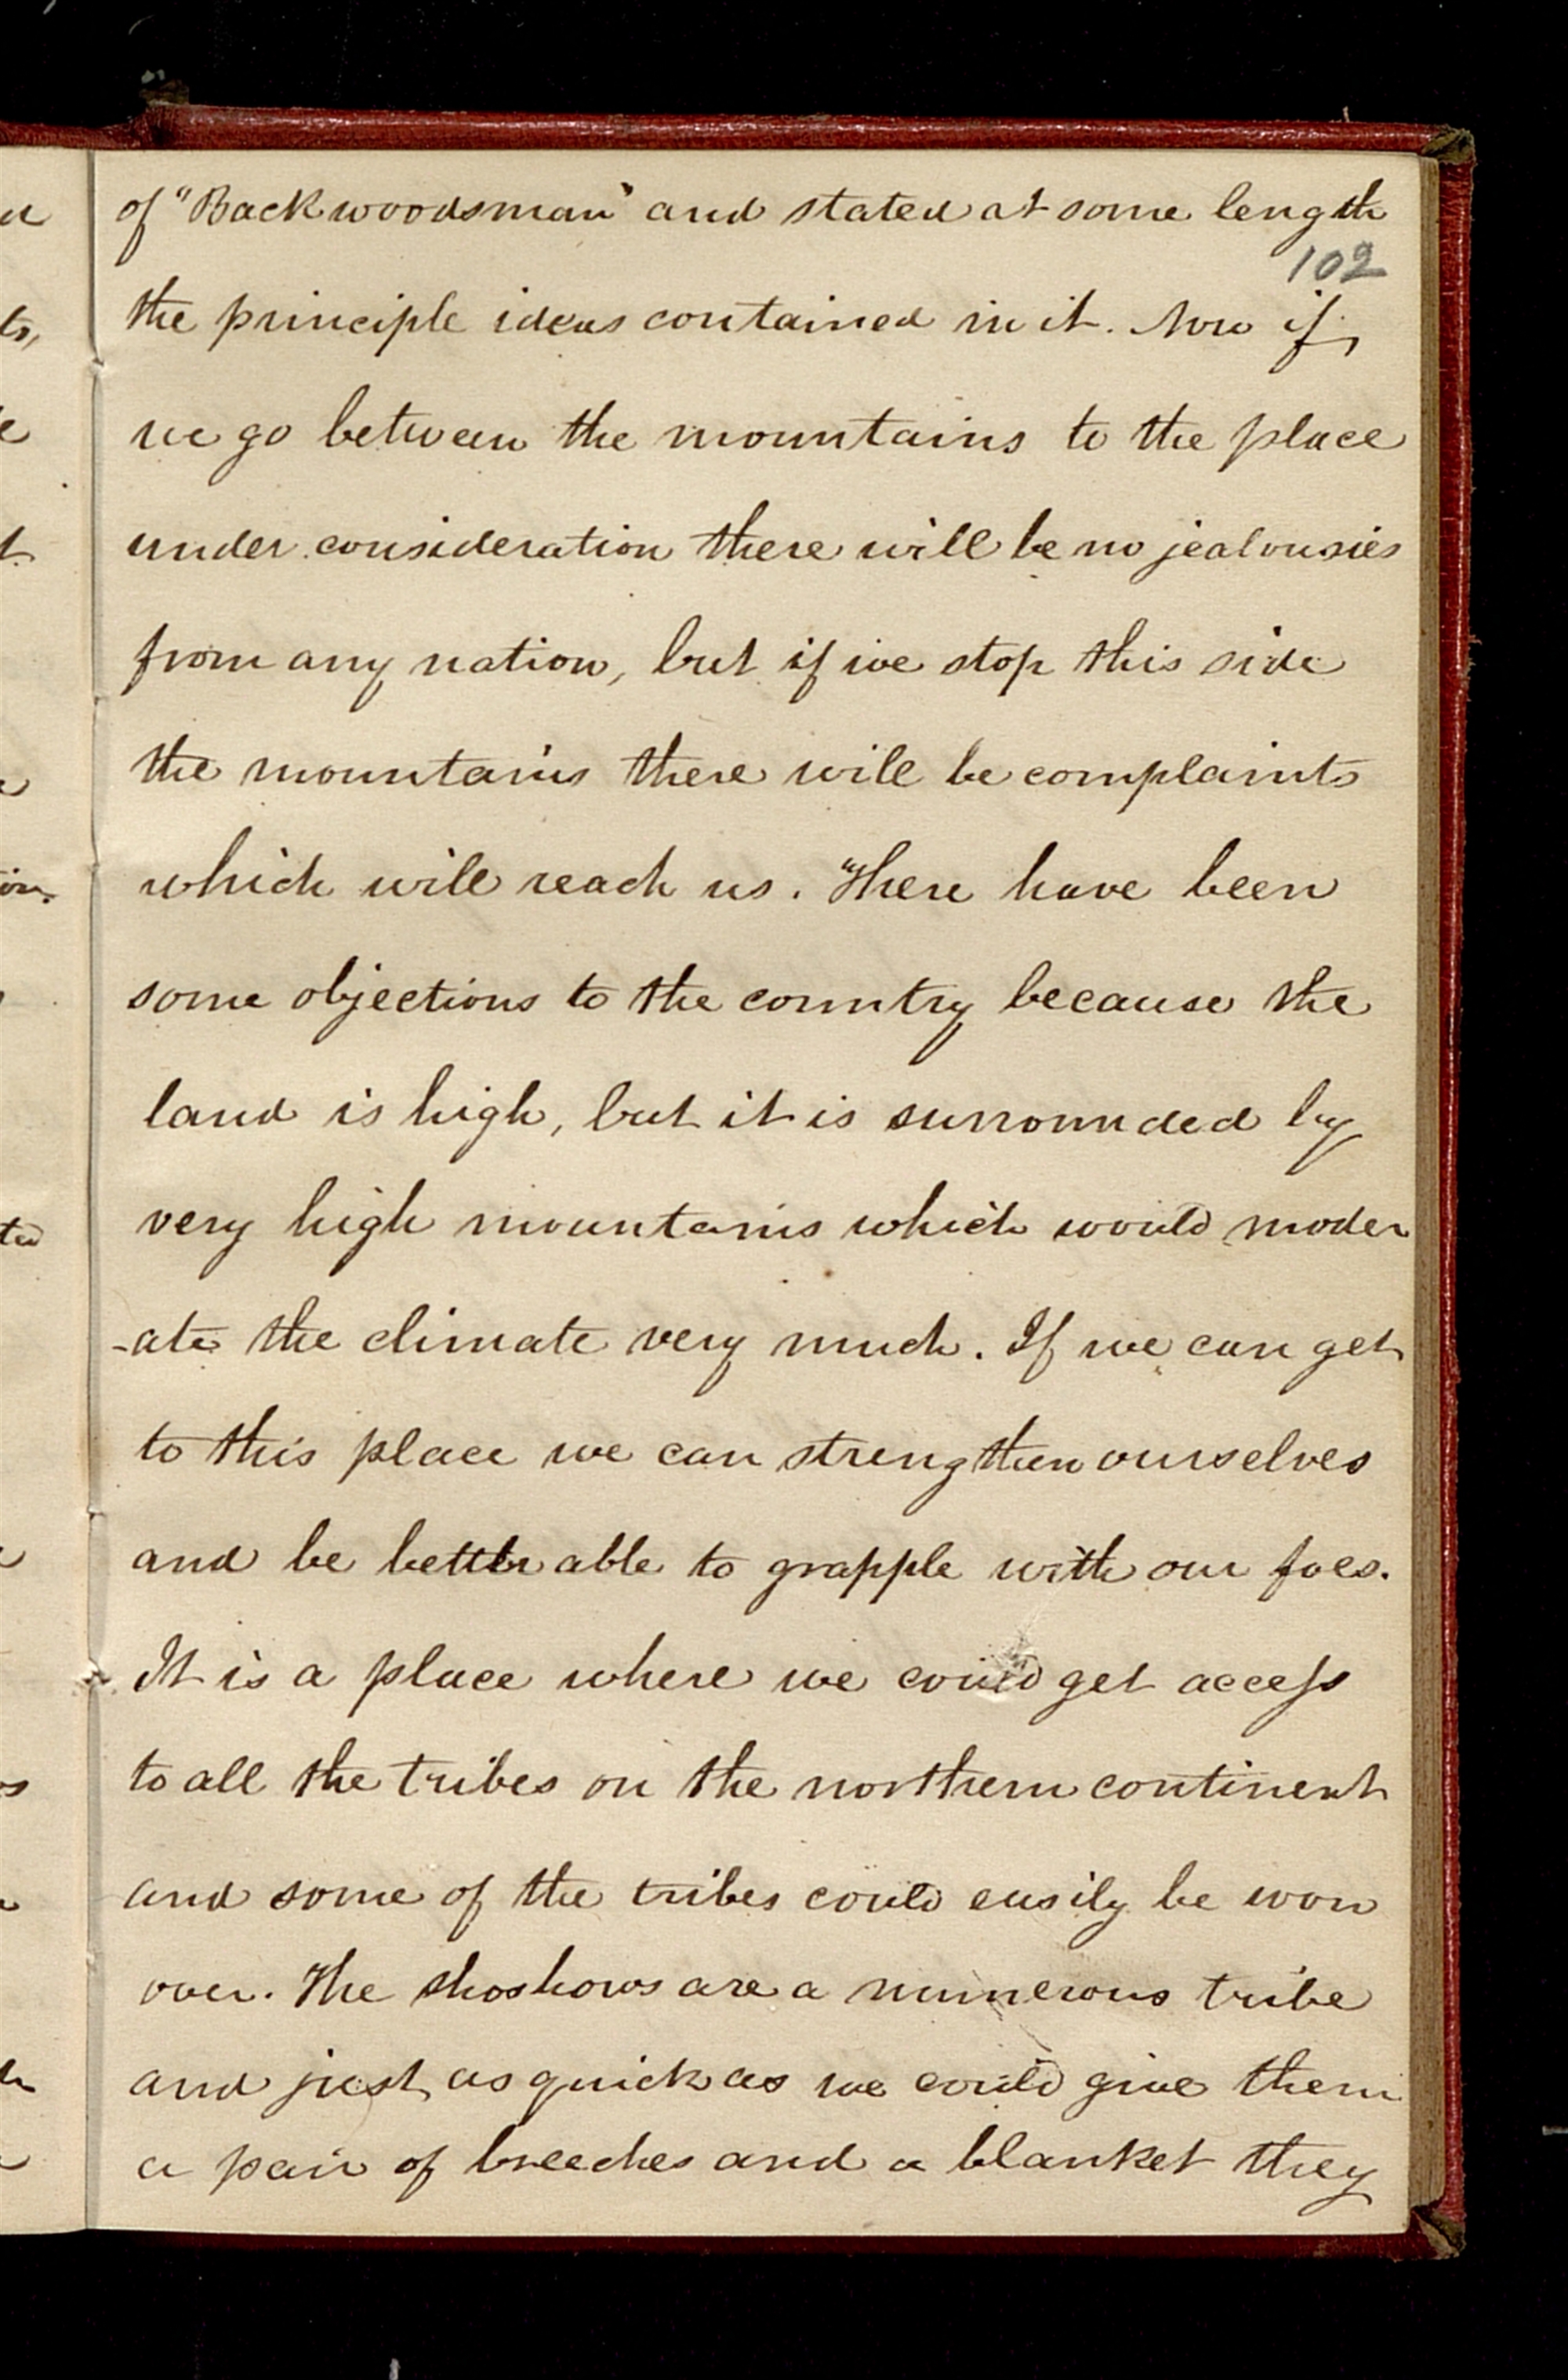 of "Backwoodsman" and stated at some length
102
the principle ideas contained in it. Now if,
we go between the mountains to the place
under consideration there will be no jealousies
from any nation, but if we stop this side
the mountains there will be complaints
which will reach us. "There have been
some objections to the country because the
land is high, but it is surrounded by
very high mountains which would moder
-ate the climate very much. If we can get
to this place we can strengthen ourselves
and be better able to grapple with our foes.
It is a place where we could get access
to all the tribes on the northern continent
and some of the tribes could easily be won
over. The shoshows are a numerous tribe
and just as quick as we could give them
a pair of breeches and a blanket they